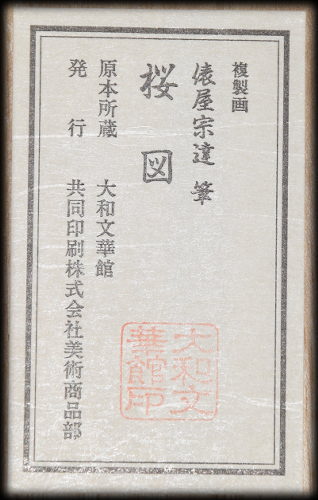 複製画
俵屋宗達 筆
桜図
原本所蔵 大和文華館
発行 共同印刷株式会社美術商品部
大和文
華館印